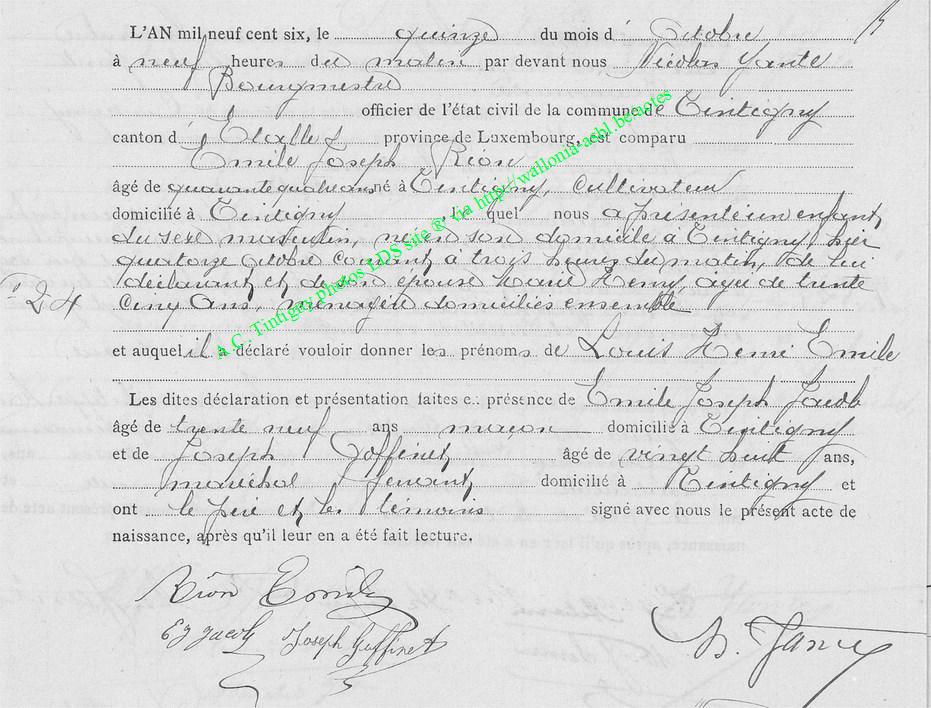 L'AN mil neuf cent six, le quinze du mois d Octobre
à neuf heures du matin par devant nous Nicolas
Bourgmestre
officier de l'état civil de la commune de Tintigny
canton d Etalle province de Luxembourg, est comparu
Emile Joseph Rion
âgé de quarante quatre ans né à Tintigny, cultivateur
domicilié à Tintigny lequel nous a présenté un enfant
du sexe masculin, né en son domicile à Tintigny, hier
quatorze Octobre courant à trois heures du matin, de lui
déclarant et de son épouse Marie Henry, âgée de trente
N° 24
Cinq Ans, ménagère domiciliés ensemble
et auquel il a déclaré vouloir donner les prénoms de Louis Henri Emile
Les dites déclaration et présentation faites en présence de Emile Joseph Jacob
âgé de trente neuf ans maçon domicilié à Tintigny
et de Joseph Goffinet, âgé de vingt huit ans,
maréchal ferrant, domicilié à Tintigny et
ont le père et les témoins signé avec nous le présent acte de
naissance, après qu'il leur en a été fait lecture.
Rion Emile
EJ Jacob Joseph Goffinet
a C. Tintigny photos LDS site ® via http://wallonia-asbl.be.notes